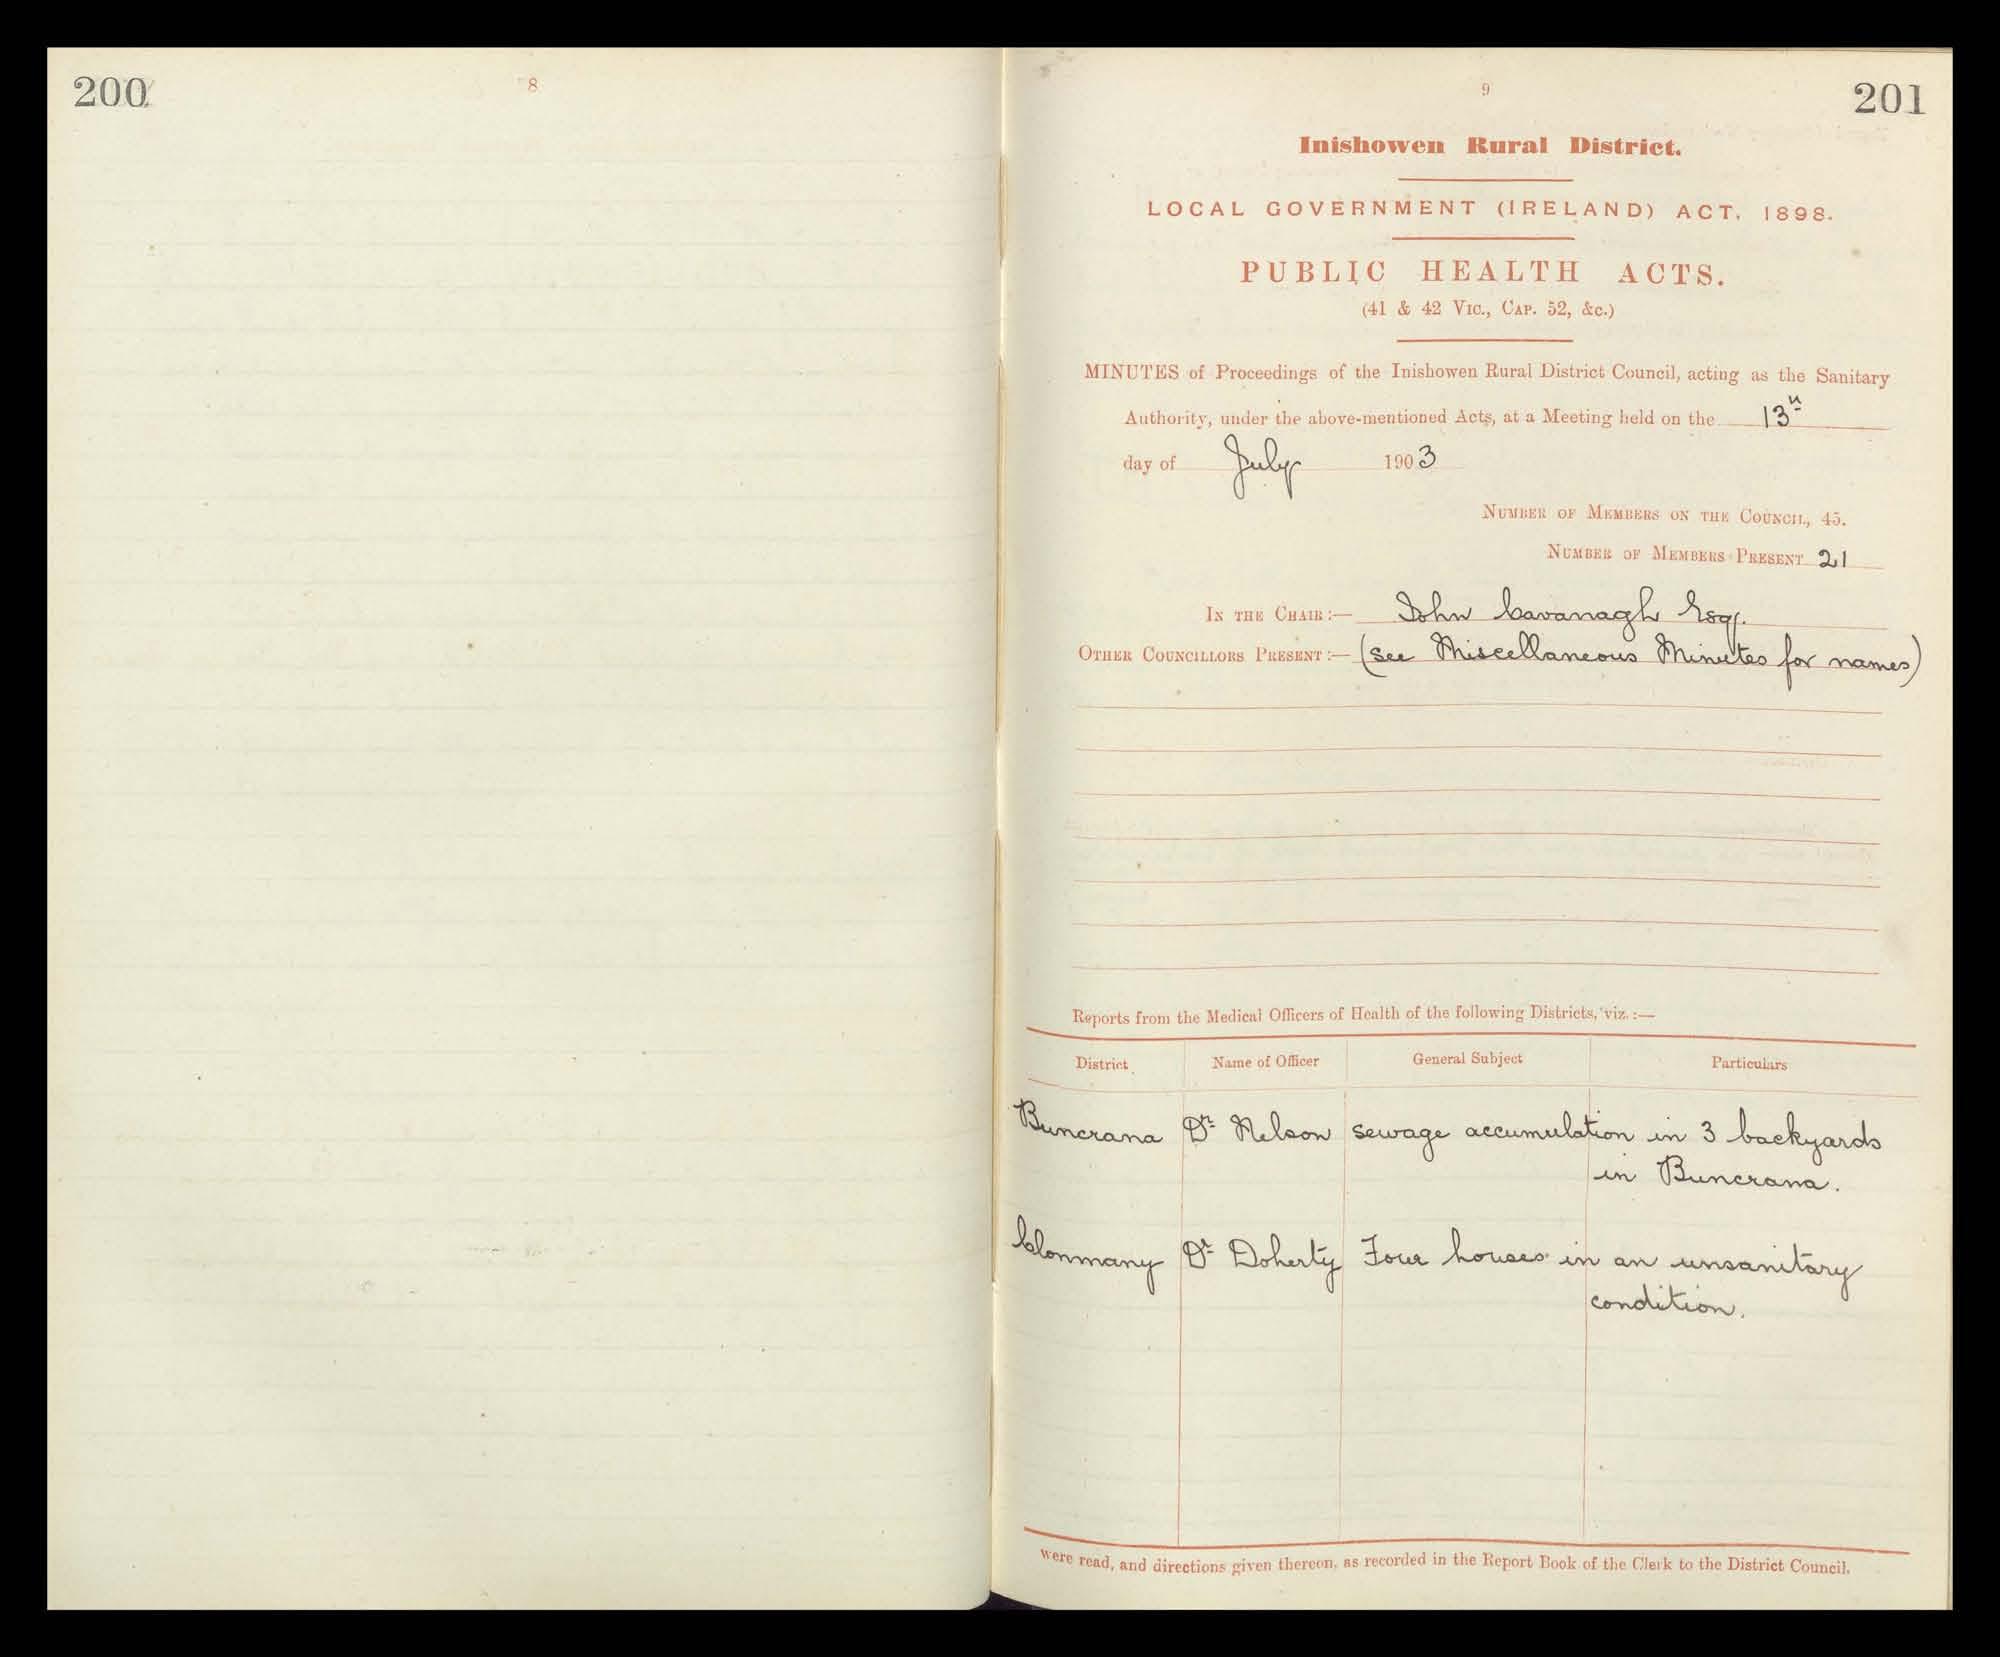 200
8
9
201
Inishowen Rural District.
LOCAL GOVERNMENT (IRELAND) ACT, 1898.
PUBLIC HEALTH ACTS.
(41 & 42 Vic., Cap. 52, &c.)
MINUTES of Proceedings of the Inishowen Rural District Council, acting as the Sanitary
Authority, under the above-mentioned Acts, at a Meeting held on the 13th
day of July 1903
Number of Members on the Council, 45.
Number of Members Present 21
In the Chair:— John Cavanagh Esqr.
Other Councillors Present:— (see Miscellaneous Minutes for names)
Reports from the Medical Officers of Health of the following Districts, viz.:—
District Name of Officer General Subject Particulars
Buncrana Dr Nelson sewage accumulation in 3 backyards
in Buncrana.
Clonmany Dr Doherty Four houses in an unsanitary
condition.
were read, and directions given thereon, as recorded in the Report Book of the Clerk to the District Council.